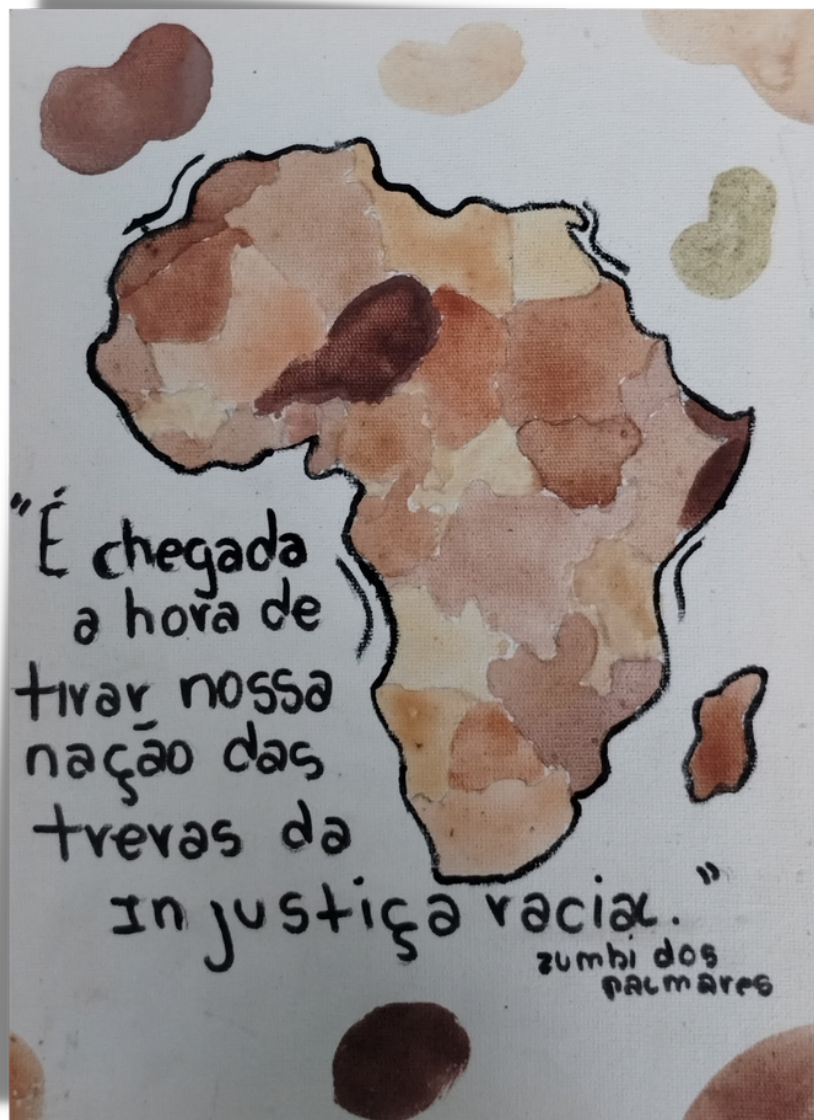 "É chegada
a hora de
tirar nossa
nação das
trevas da
Injustiça racial."
zumbi dos
palmares